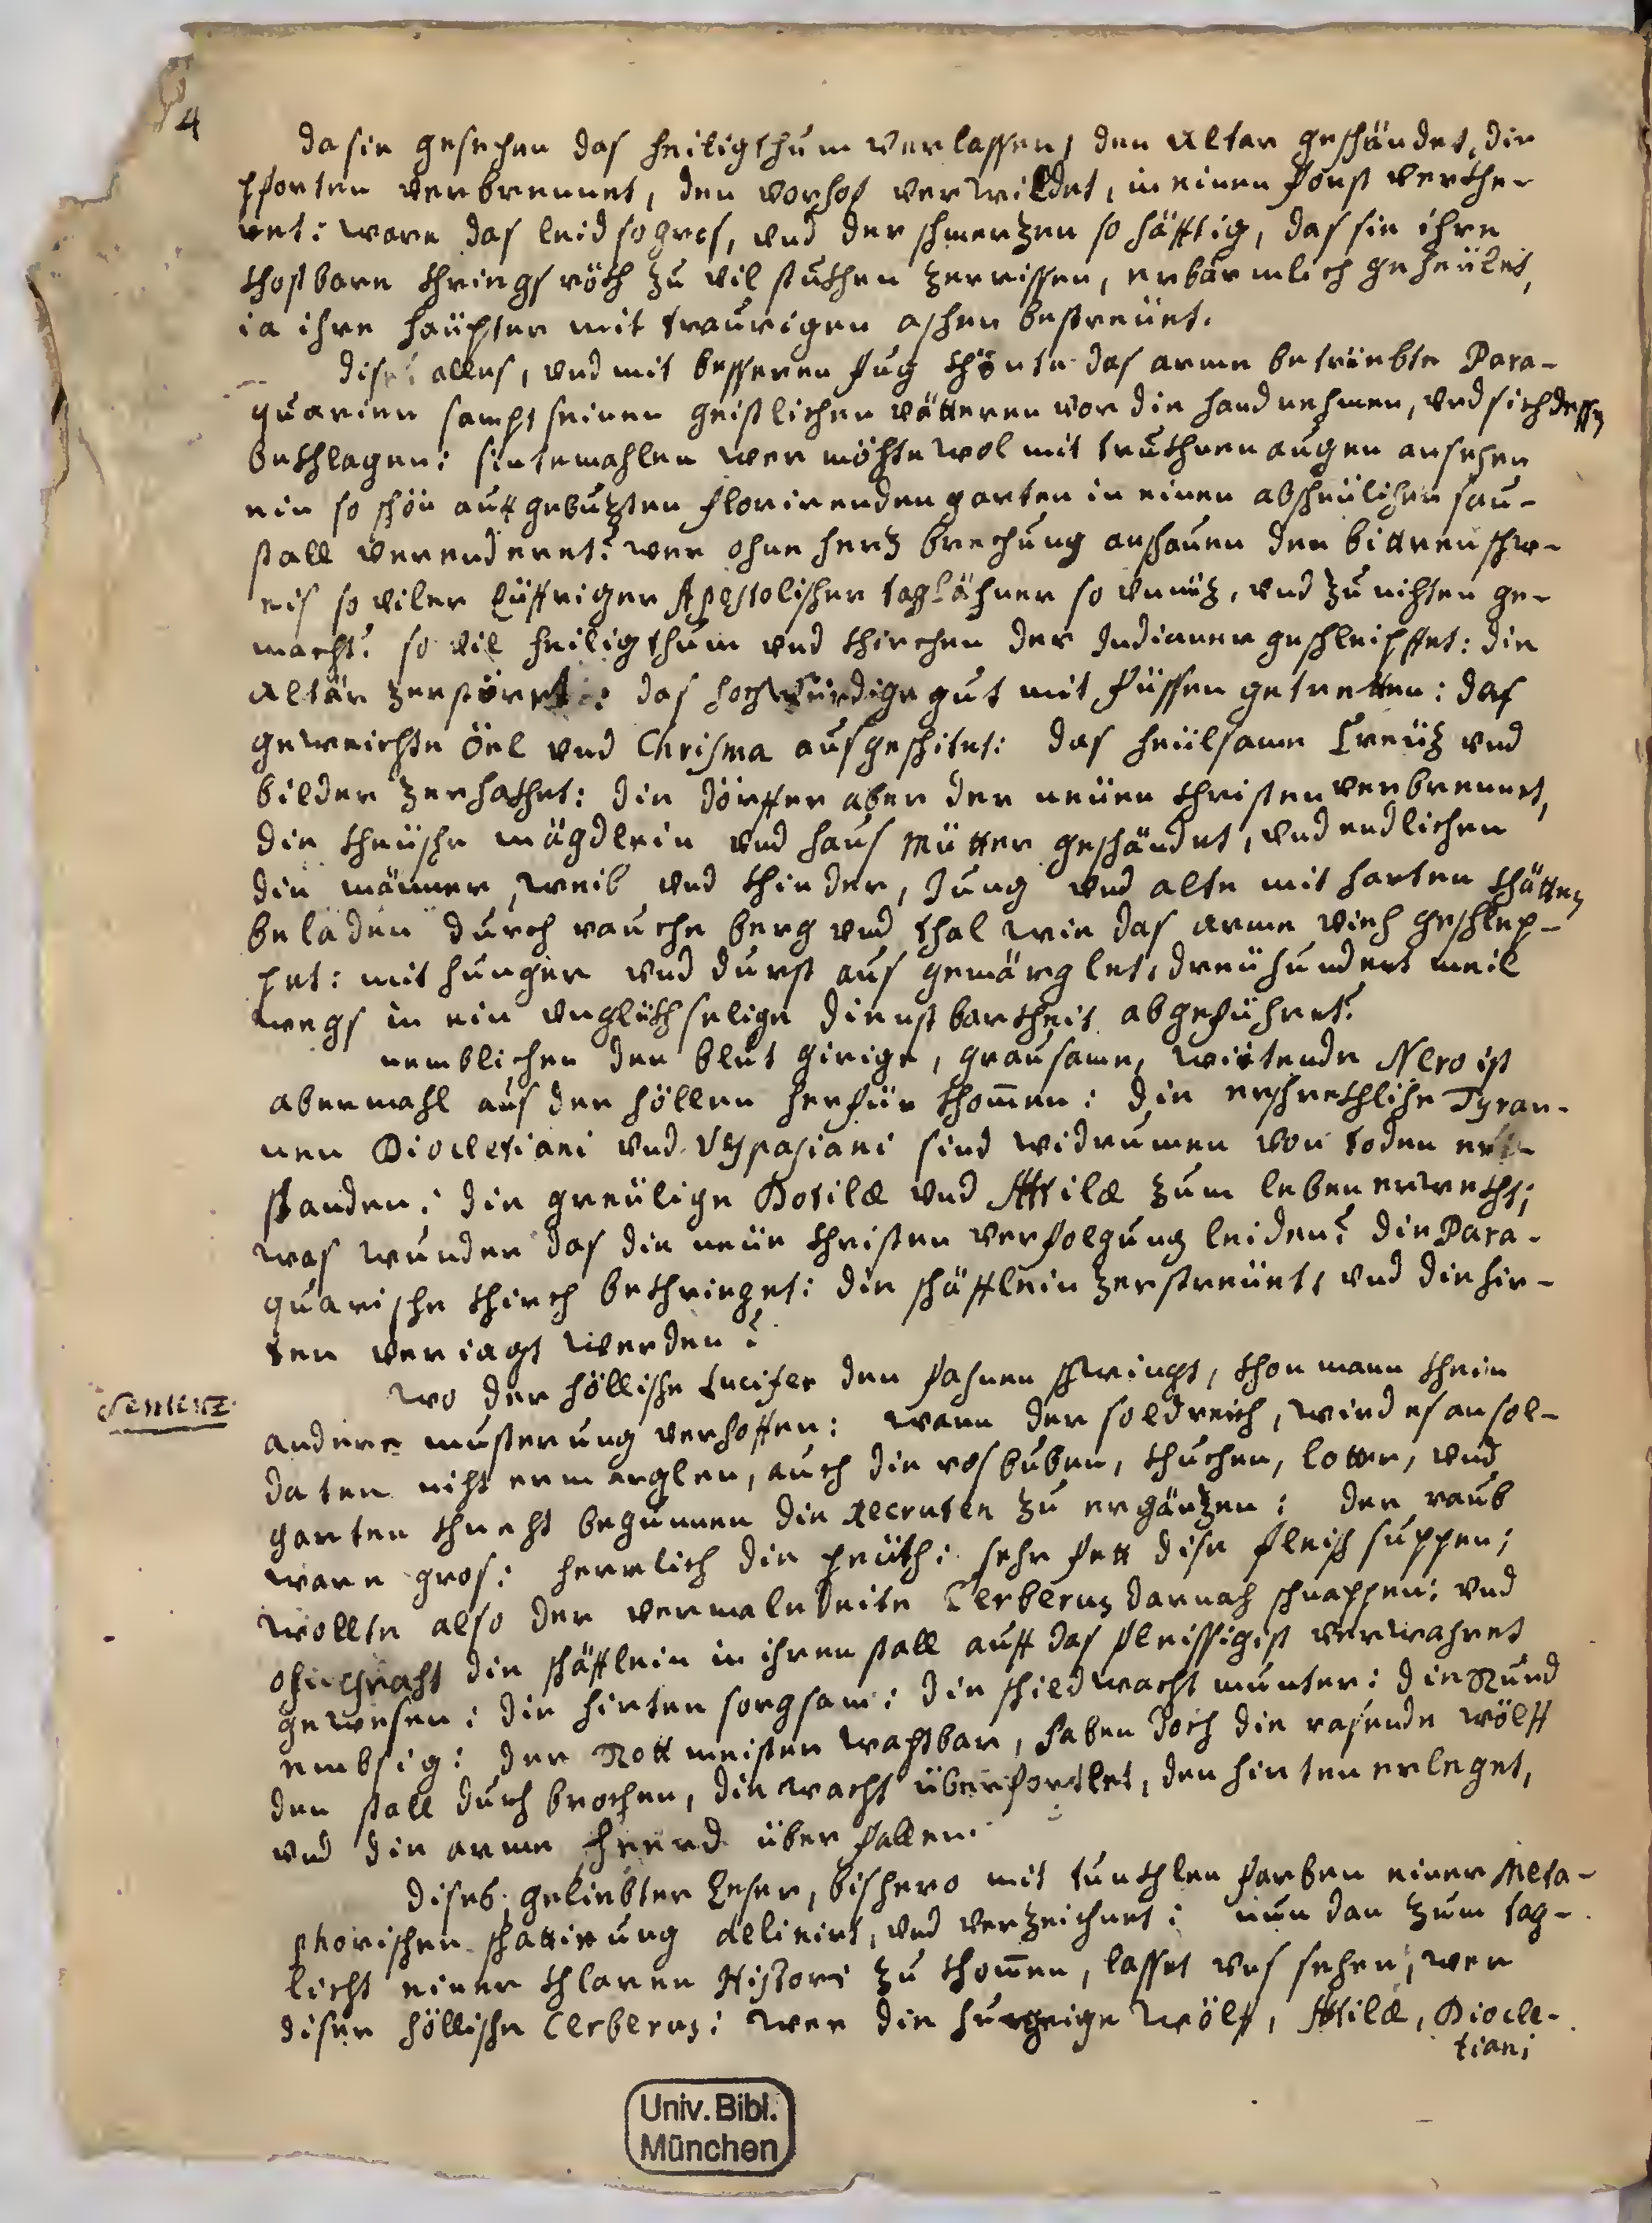 4
da sie gesehen das heiligthum verlassen, den Altar geschändet, die
pforten verbrennet, den vorhof verwildet, in einen forst verkhe-
ret: ware das leid so gros, vnd der schmertzen so häfftig, das sie ihre
khostbare khriegs röth zu vil stukhen zerrissen, erbärmlich geheület,
ia ihre haüpter mit traurigen aschen bestreüet.
dises alles, vnd mit besseren fug khönte das arme betrüebte Para-
quarien sampt seinen geistlichen vätteren vor die hand nehmen, vnd sich dessen
bekhlagen: sintemahlen wer möchte wol mit trukhnen augen ansehen
ein so schön auffgebutzten florirenden garten in einen abscheülichen sau-
stall verenderet? wer ohne hertz brechung anschauen den bitteren schw-
eis so viler Eüffriger Apostolischer taglöhner so vnnüz, vnd zu nichten ge-
macht? so vil heiligthum vnd khirchen der Indianer geschleipffet: die
Altär zerstöret: das hochwürdige gut mit füssen getretten: das
geweichte Öel vnd Chrisma ausgeschitet: das heülsame Creütz vnd
bilder zerhakhet: die dörffer aber der neüen khristen verbrennet,
die kheüsche mägdlein vnd haus Mütter geschändet, vnd endlichen
die männer, weib vnd khinder, Jung vnd alte mit harten khätten
beladen durch rauche berg vnd thal wie das arme vieh geschlep-
pet: mit hunger vnd durst aus gemärglet, dreühundert meil
wegs in ein vnglükhselige dienstbarkheit abgeführet?
nemblichen der blut girige, grausame, wietende Nero ist
abermahl aus der höllen herfür khom̄en: die erschrekhliche Tyran-
nen Diocletiani vnd Vespasiani sind widerumen von toden er-
standen: die greülige Dotilæ vnd Attilæ zum leben erwekht;
was wunder das die neüe khristen verfolgung leiden? die Para-
quarische khirch bekhrieget: die schäfflein zerstreüet, vnd die hir-
ten veriagt werden?
Sentenz
wo der höllische Lucifer den fahnen schwingt, khon mann khein
andere musterung verhoffen: wann der sold reich, wird es an sol-
daten nicht ermanglen, auch die rosbuben, khuchen, lotter, vnd
garten khnecht begunnen die Recruten zu ergäntzen: der raub
ware gros: herrlich die peüth: sehr fett dise fleisch suppen;
wollte also der vermaledeite Cerberus darnach schnappen: vnd
die schäfflein in ihren stall auff das fleissigist verwahret
gewesen: die hirten sorgsam: die schiedwacht munter: die Rund
embsig: der Rottmeister wachtbar, haben doch die rasende wölff
den stall durch brochen, die wacht überfortlet, den hirten erleget,
vnd die arme heerd überfallen.
dises, geliebter Leser, bishero mit tunkhlen farben einer Meta-
phorischen schattirung delinirt, vnd verzeichnet: nun dan zum tag-
licht einer khlaren Histori zu khom̄en, lasset vns sehen, wer
diser höllische Cerberus: wer die hungrige wölf, Attilæ, Diocle-
tiani
Univ. Bibl.
München